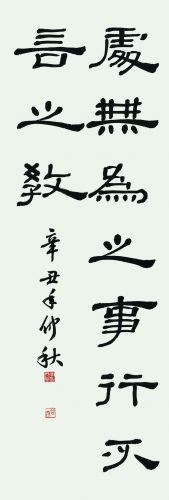 處無為之事行不
言之教
辛丑年仲秋